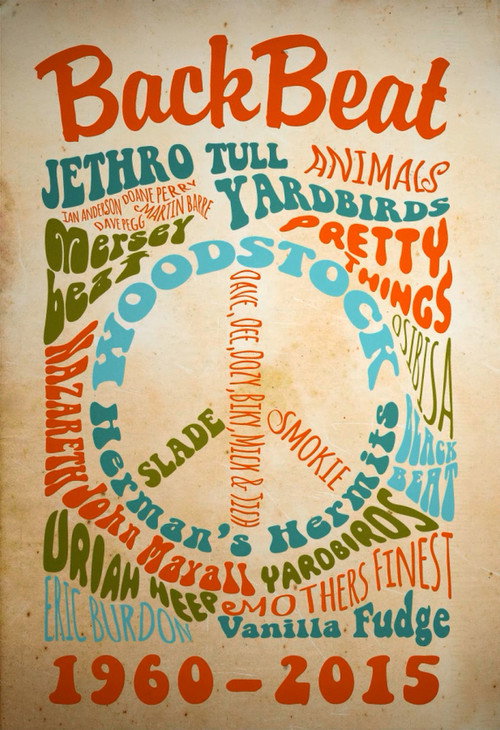 BackBeat
JETHRO TULL
ANIMALS
IAN ANDERSON DOANE PERRY
DAVE PEGG MARTIN BARRE
YARDBIRDS
Mersey
beat
PRETTY
THINGS
WOODSTOCK
DAVE, DEE, DOZY, BIKY, MICK & TICH
OSIBISA
NAZARETH
SLADE
SMOKIE
BLACK
BEAT
Herman's Hermits
John Mayall
URIAH HEEP
YARDBIRDS
MOTHERS FINEST
ERIC BURDON
Vanilla Fudge
1960-2015